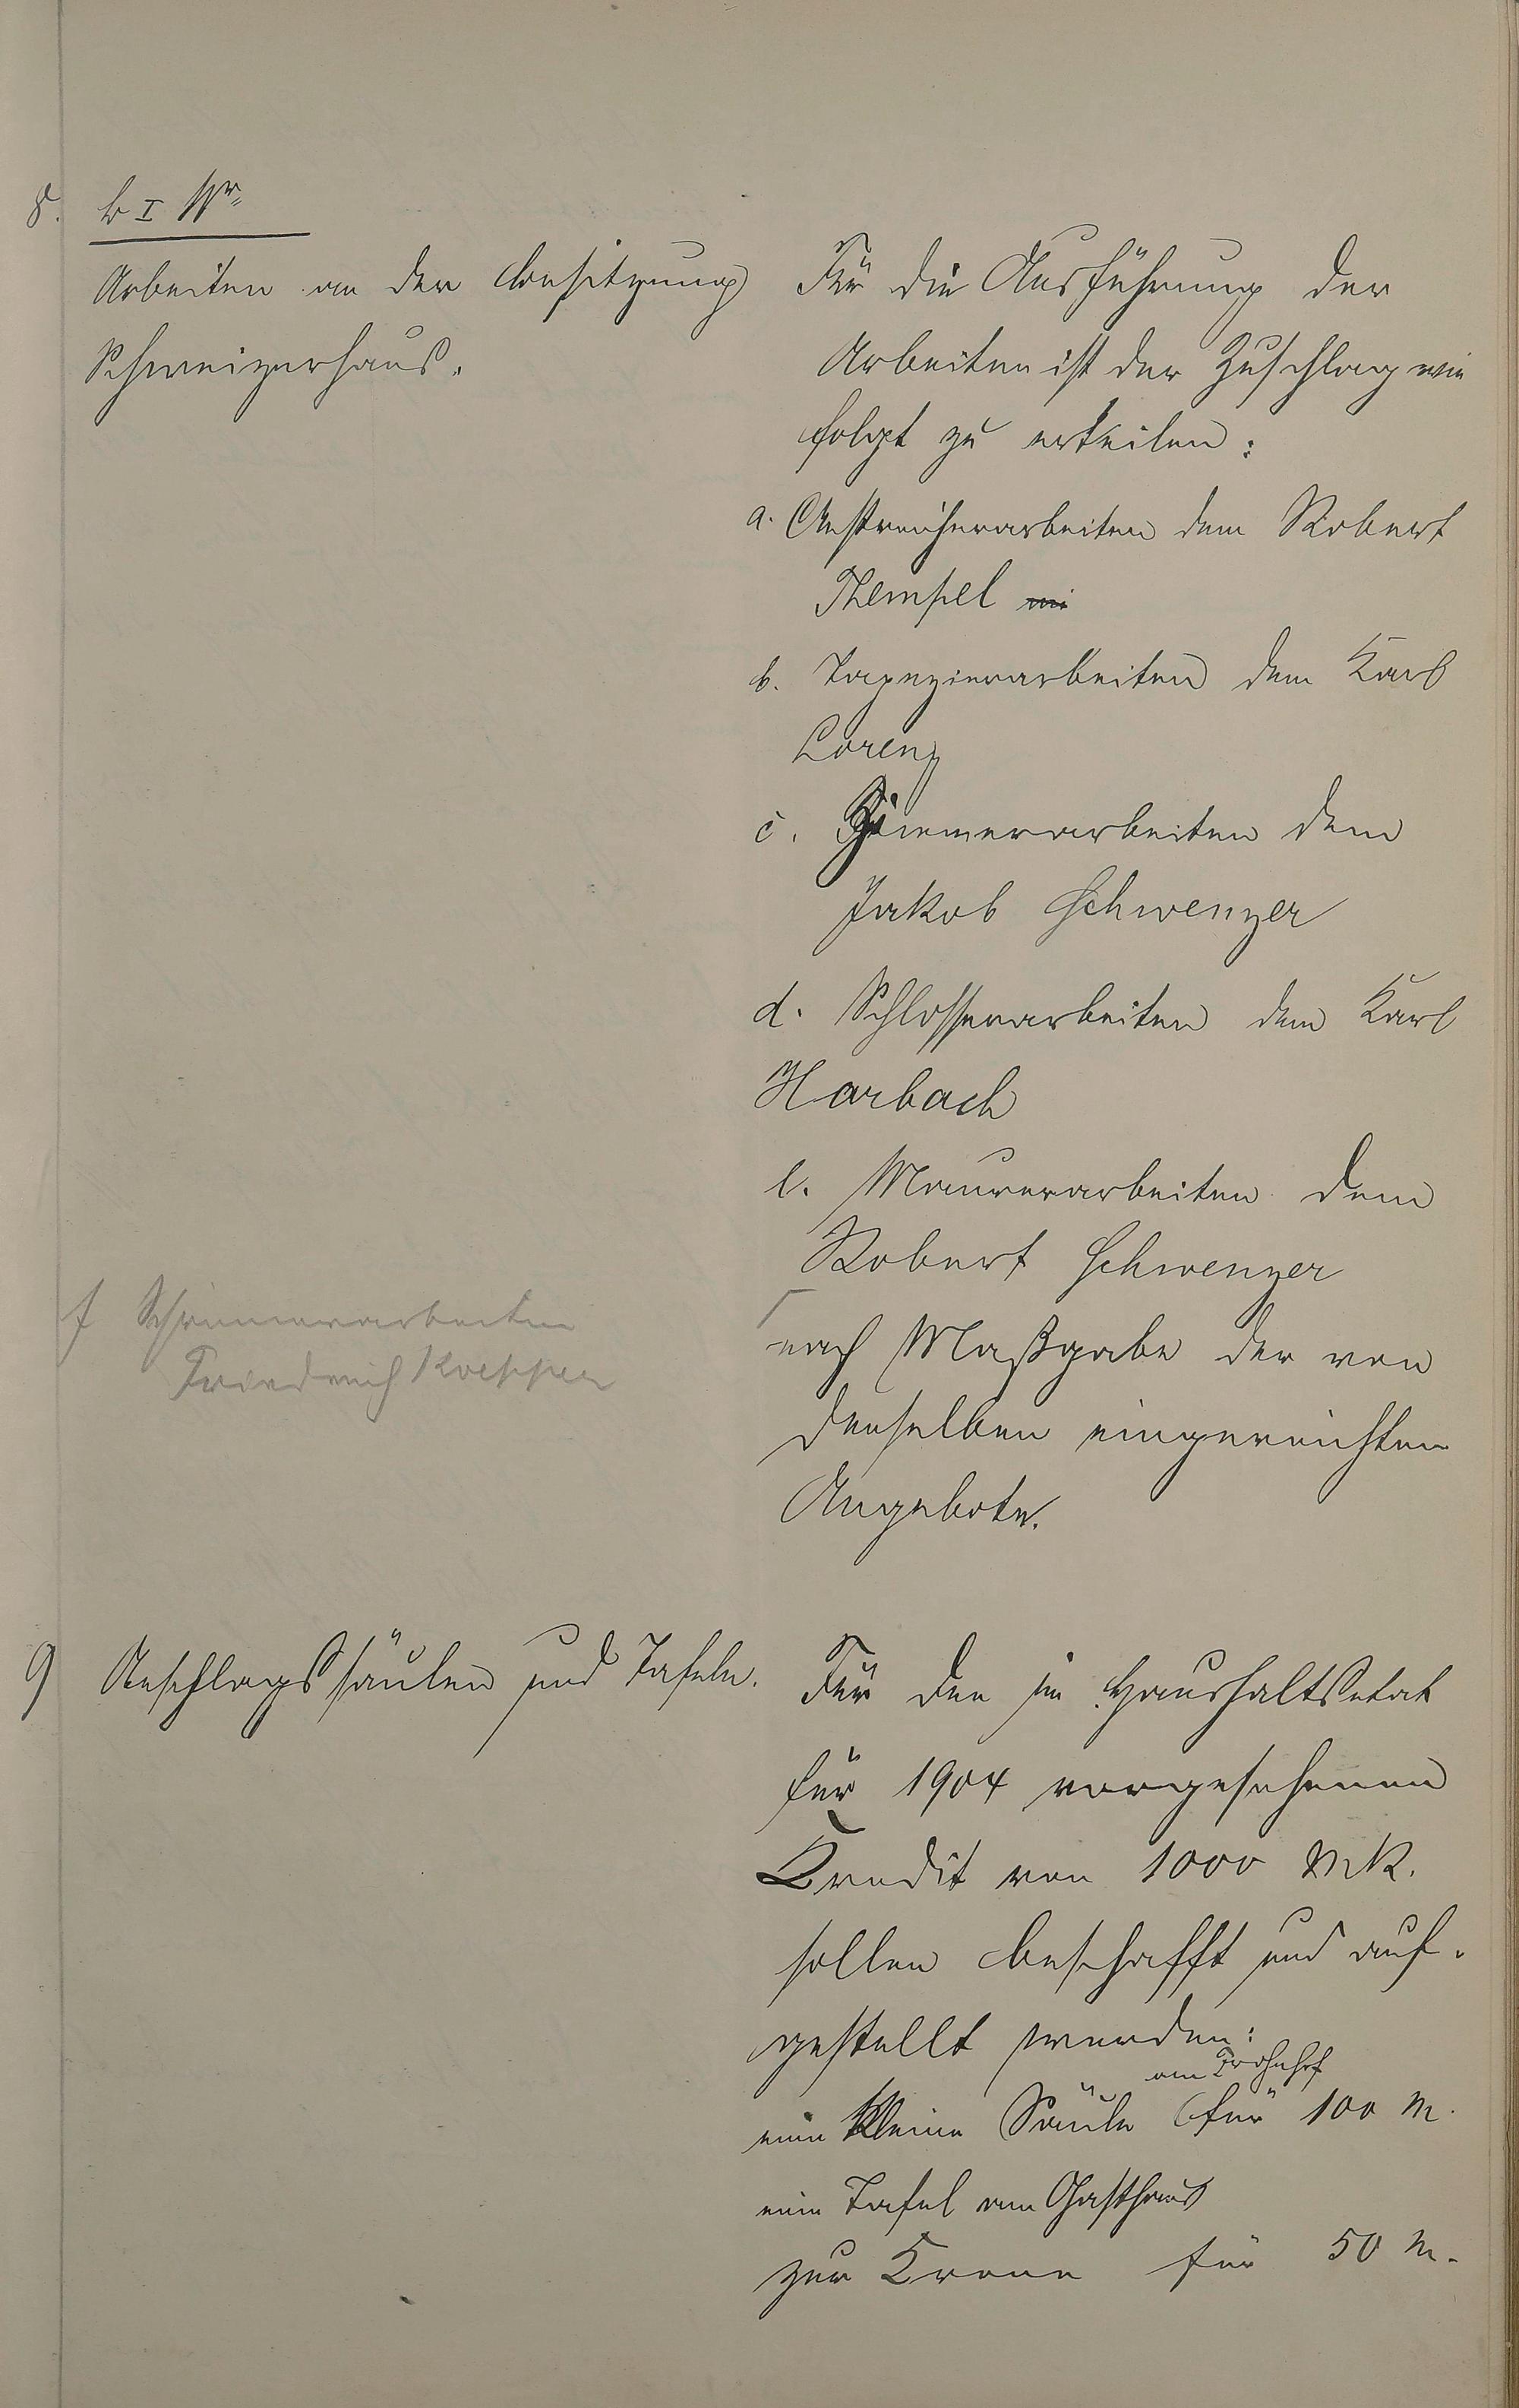 8. b I Nr.
Arbeiten an der Besitzung
Schweizerhaus.
Für die Ausführung der
Arbeiten ist der Zuschlag wie
folgt zu erteilen:
a. Anstreicherarbeiten dem Robert
Hempel
b. Tapezierarbeiten dem Karl
Lorenz
c. Zimmerarbeiten dem
Jakob Schwenzer
d. Schlosserarbeiten dem Karl
Harbach
e. Maurerarbeiten dem
Robert Schwenzer
f Schreinerarbeiten
Friedrich Kaepper
nach Maßgabe der von
denselben eingereichten
Angebote.
9 Anschlagssäulen und Tafeln.
Für den im Haushaltsetat
für 1904 vorgesehenen
Kredit von 1000 Mk.
sollen beschafft und auf-
gestellt werden:
am Frohnhof
eine kleine Säule für 100 M.
eine Tafel am Gasthaus
zur Krone für 50 M.